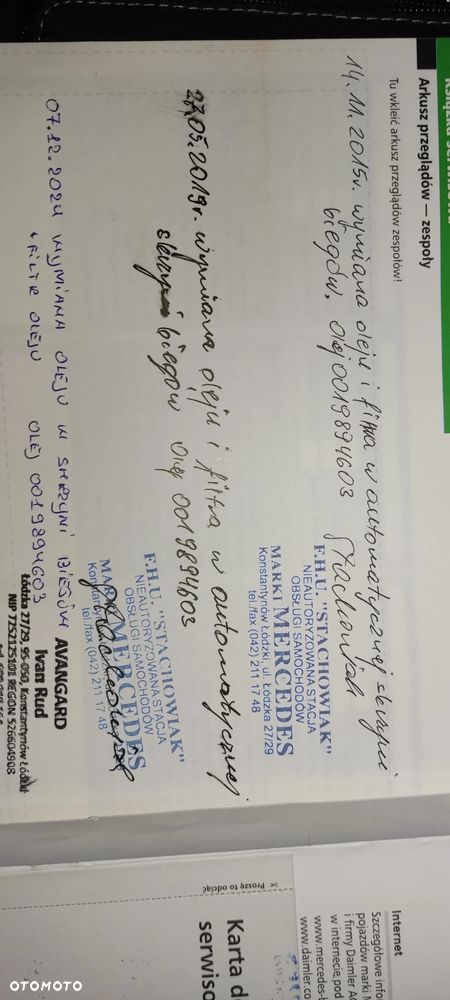 Książka serwisowa
Arkusz przeglądów — zespoły
Tu wkleić arkusz przeglądów zespołów!
14.11.2015r. wymiana oleju i filtra w automatycznej skrzyni
biegów. olej 0019894603 Stachowiak
F.H.U. "STACHOWIAK"
NIEAUTORYZOWANA STACJA
OBSŁUGI SAMOCHODÓW
MARKI MERCEDES
Konstantynów Łódzki, ul. Łódzka 27/29
tel./fax (042) 211 17 48
27.05.2019r. wymiana oleju i filtra w automatycznej
skrzyni biegów olej 0019894603
F.H.U. "STACHOWIAK"
NIEAUTORYZOWANA STACJA
OBSŁUGI SAMOCHODÓW
MARKI MERCEDES
tel./fax (042) 211 17 48
07.12.2024 WYMIANA OLEJU W SKRZYNI BIEGÓW
+ FILTR OLEJU OLEJ 0019894603
AVANGARD
Ivan Rud
Łódzka 27/29, 95-050, Konstantynów Łódzki
NIP 7752125101 REGON 526604908
Proszę to odciąć
Karta d
serwiso
Internet
Szczegółowe info
pojazdów marki
i firmy Daimler A
w internecie pod
www.mercedes-
www.daimler.co
OTOMOTO